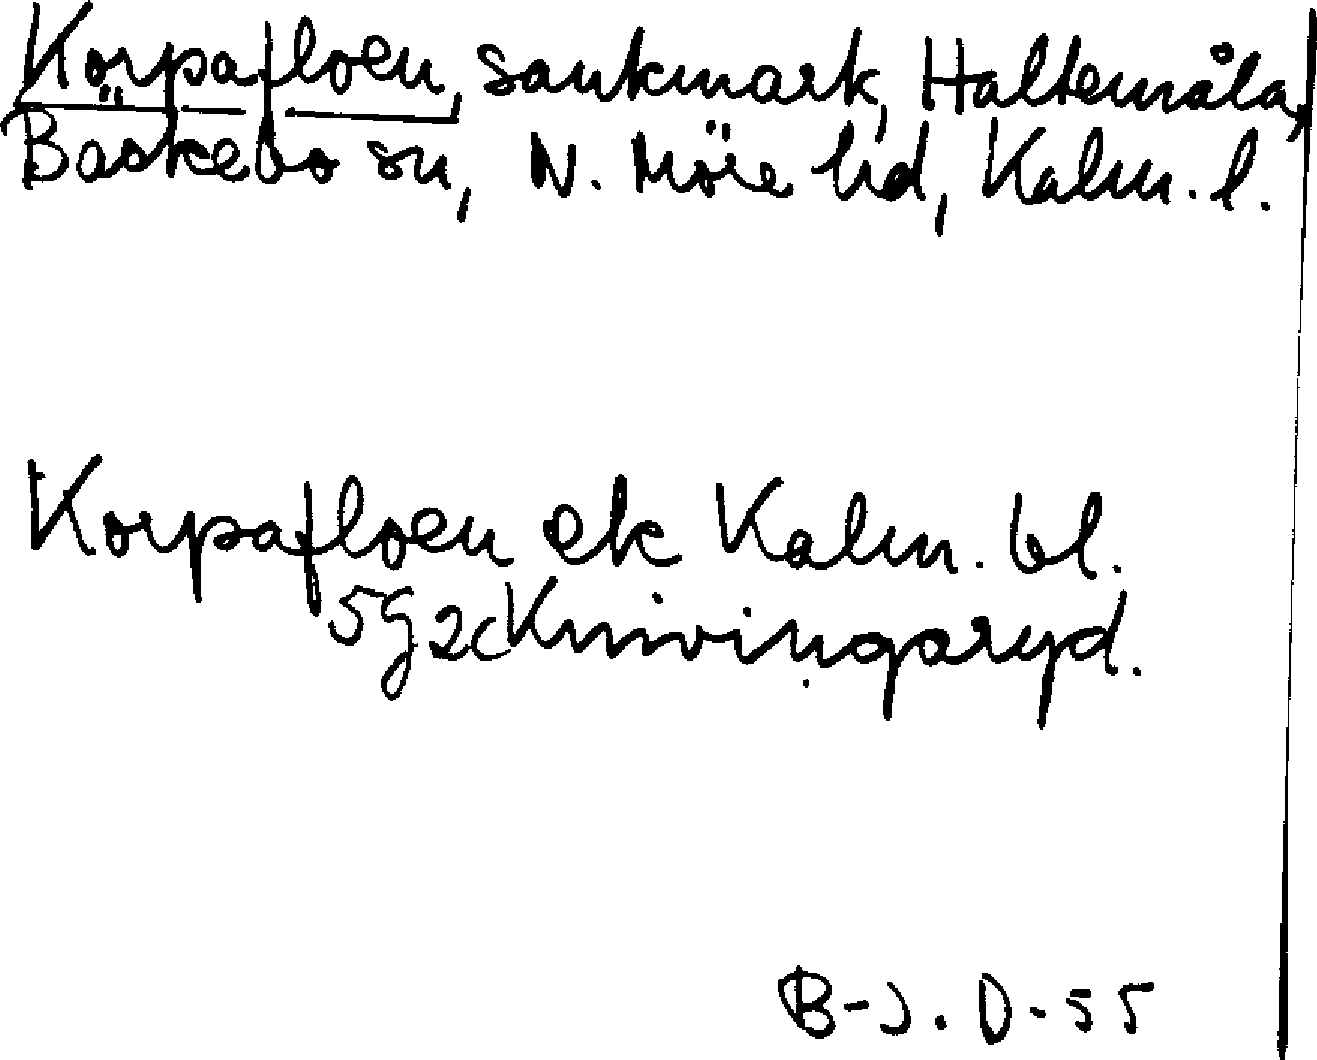 Korpafloen, sankmark, Haltemåla,
Bäckebo sn, N. Möre hd, Kalm. l.
Korpafloen ek Kalm. bl.
5G2c Knivingaryd.
B-J. D-55